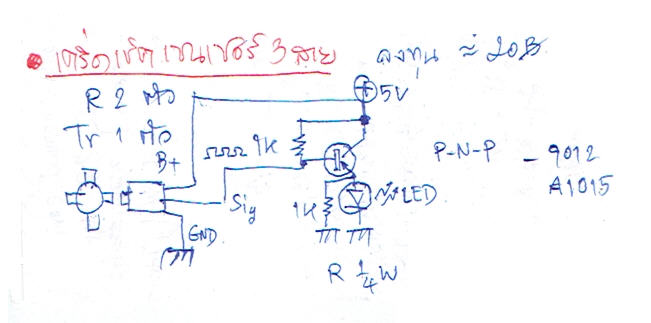 เครื่องเช็คเซนเซอร์ 3 สาย
ลงทุน ≈ 20฿
R 2 ตัว
5V
Tr 1 ตัว
B+
1K
P-N-P - 9012
A1015
Sig
1K
LED
GND
R 1/4 W